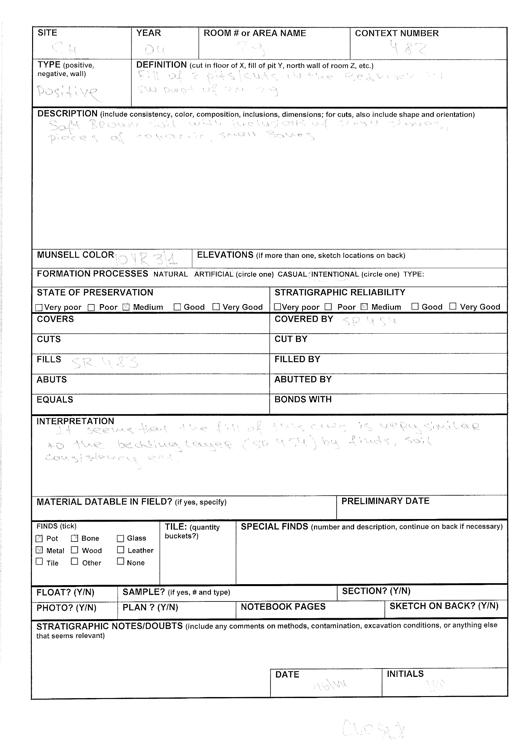 SITE YEAR ROOM # or AREA NAME CONTEXT NUMBER
04 482
TYPE (positive, negative, wall) DEFINITION (cut in floor of X, fill of pit Y, north wall of room Z, etc.)
Positive Fill of 2 pits/cuts in the
SW part of
DESCRIPTION (include consistency, color, composition, inclusions, dimensions; for cuts, also include shape and orientation)
Soft Brown soil with inclusions of small stones,
pieces of small bones
MUNSELL COLOR ELEVATIONS (if more than one, sketch locations on back)
FORMATION PROCESSES NATURAL ARTIFICIAL (circle one) CASUAL INTENTIONAL (circle one) TYPE:
STATE OF PRESERVATION STRATIGRAPHIC RELIABILITY
Very poor Poor Medium Good Very Good Very poor Poor Medium Good Very Good
COVERS COVERED BY SR 454
CUTS CUT BY
FILLS SR 483 FILLED BY
ABUTS ABUTTED BY
EQUALS BONDS WITH
INTERPRETATION
It seems that the fill of this cuts is very similar
to the bedding layer (SR 454) by finds, soil
consistency
MATERIAL DATABLE IN FIELD? (if yes, specify) PRELIMINARY DATE
FINDS (tick) TILE: (quantity buckets?) SPECIAL FINDS (number and description, continue on back if necessary)
Pot Bone Glass
Metal Wood Leather
Tile Other None
FLOAT? (Y/N) SAMPLE? (if yes, # and type) SECTION? (Y/N)
PHOTO? (Y/N) PLAN ? (Y/N) NOTEBOOK PAGES SKETCH ON BACK? (Y/N)
STRATIGRAPHIC NOTES/DOUBTS (include any comments on methods, contamination, excavation conditions, or anything else
that seems relevant)
DATE INITIALS